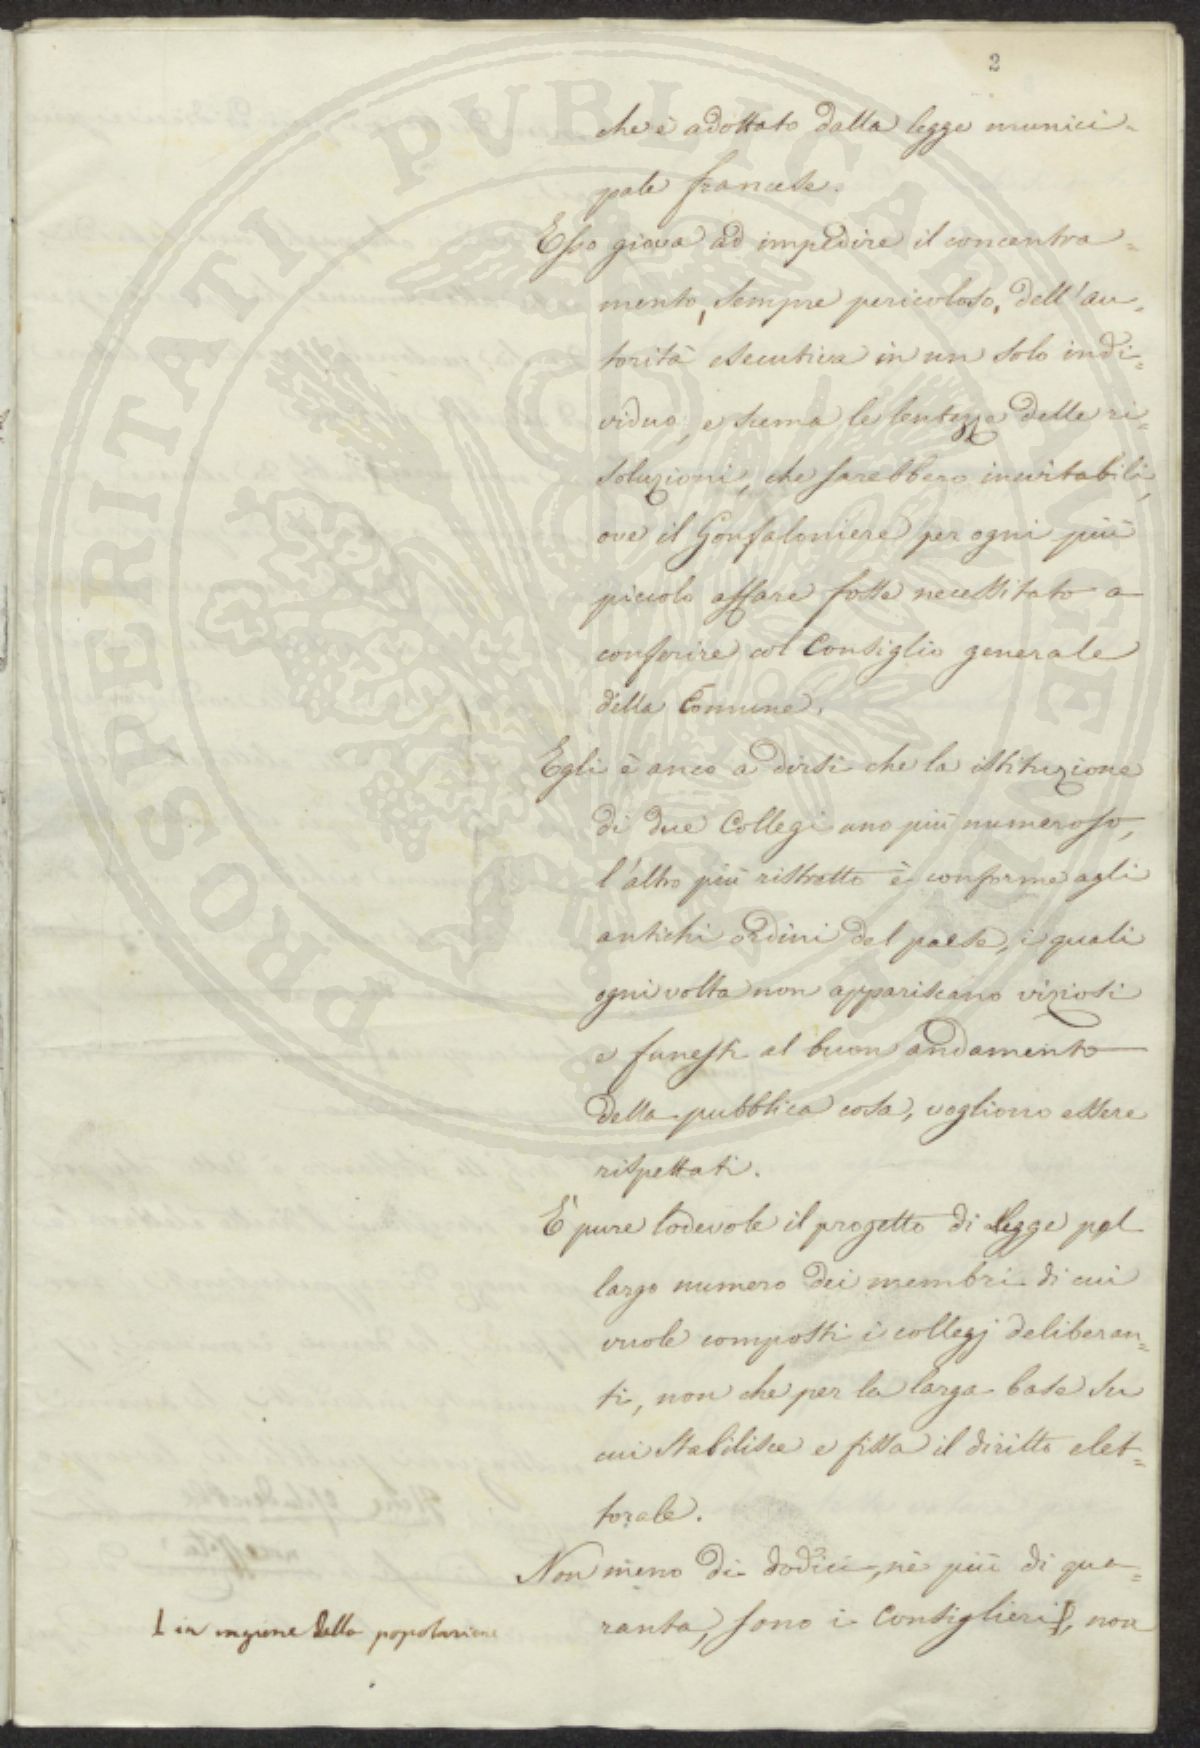 2
che è adottato dalla legge munici=
pale francese.
Esso giova ad impedire il concentra=
mento, sempre pericoloso, dell'au=
torità esecutiva in un solo indi=
viduo, e scema le lentezze delle ri=
soluzioni, che sarebbero inevitabili,
ove il Gonfaloniere per ogni più
piccolo affare fosse necessitato a
conferire col Consiglio generale
della Comune.
Egli è anco a dirsi che la istituzione
di due Collegi uno più numeroso,
l'altro più ristretto è conforme agli
antichi ordini del paese, i quali
ogni volta non appariscano viziosi
e funesti al buon andamento
della pubblica cosa, vogliono essere
rispettati.
È pure lodevole il progetto di Legge pel
largo numero dei membri di cui
vuole composti i collegj deliberan=
ti, non che per la larga base su
cui stabilisce e fissa il diritto elet=
torale.
Non meno di dodici, nè più di qua=
ranta, sono i Consiglieri, non
in ragione della popolazione
PROSPERITATI PVBLICAE AVGENDAE